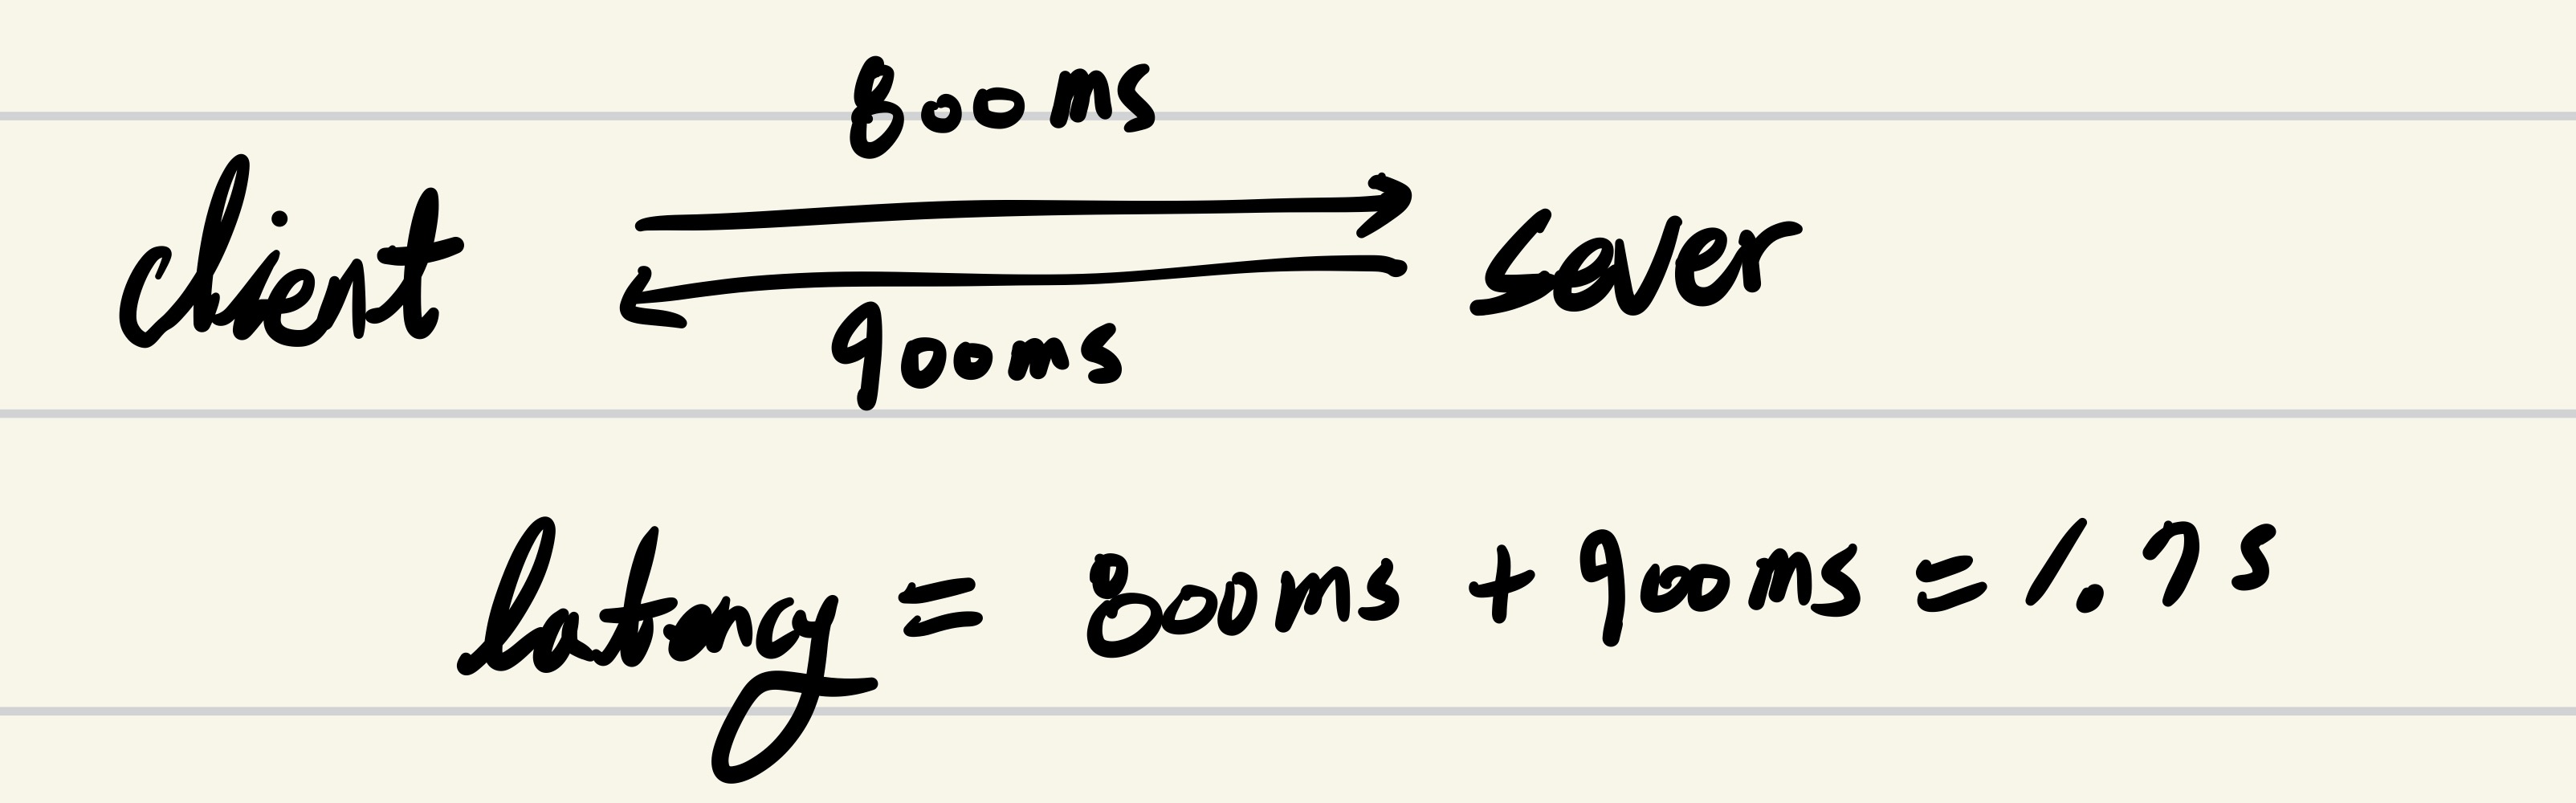 800ms
client sever
900ms
latency = 800ms + 900ms = 1.7s